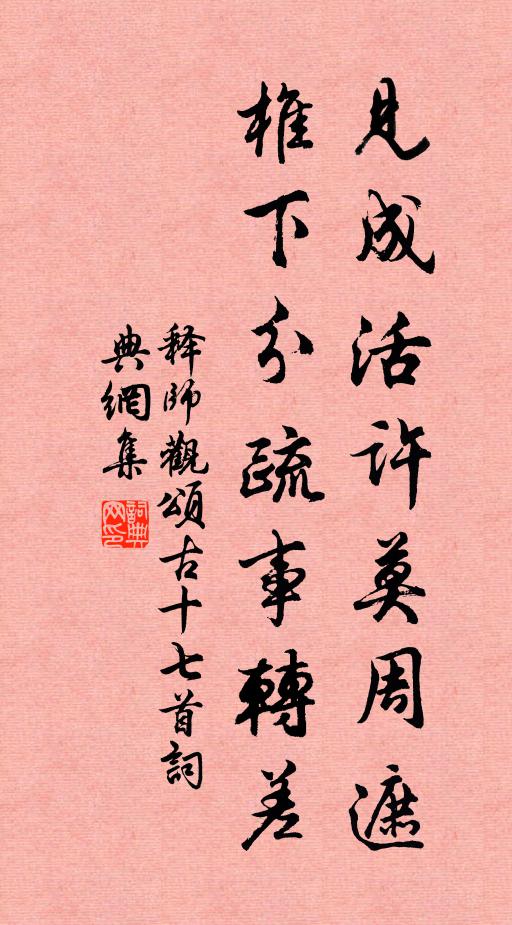 見成活許莫周遮
椎下分疏事轉差
释師觀頌古十七首詞
典網集
詞典網印